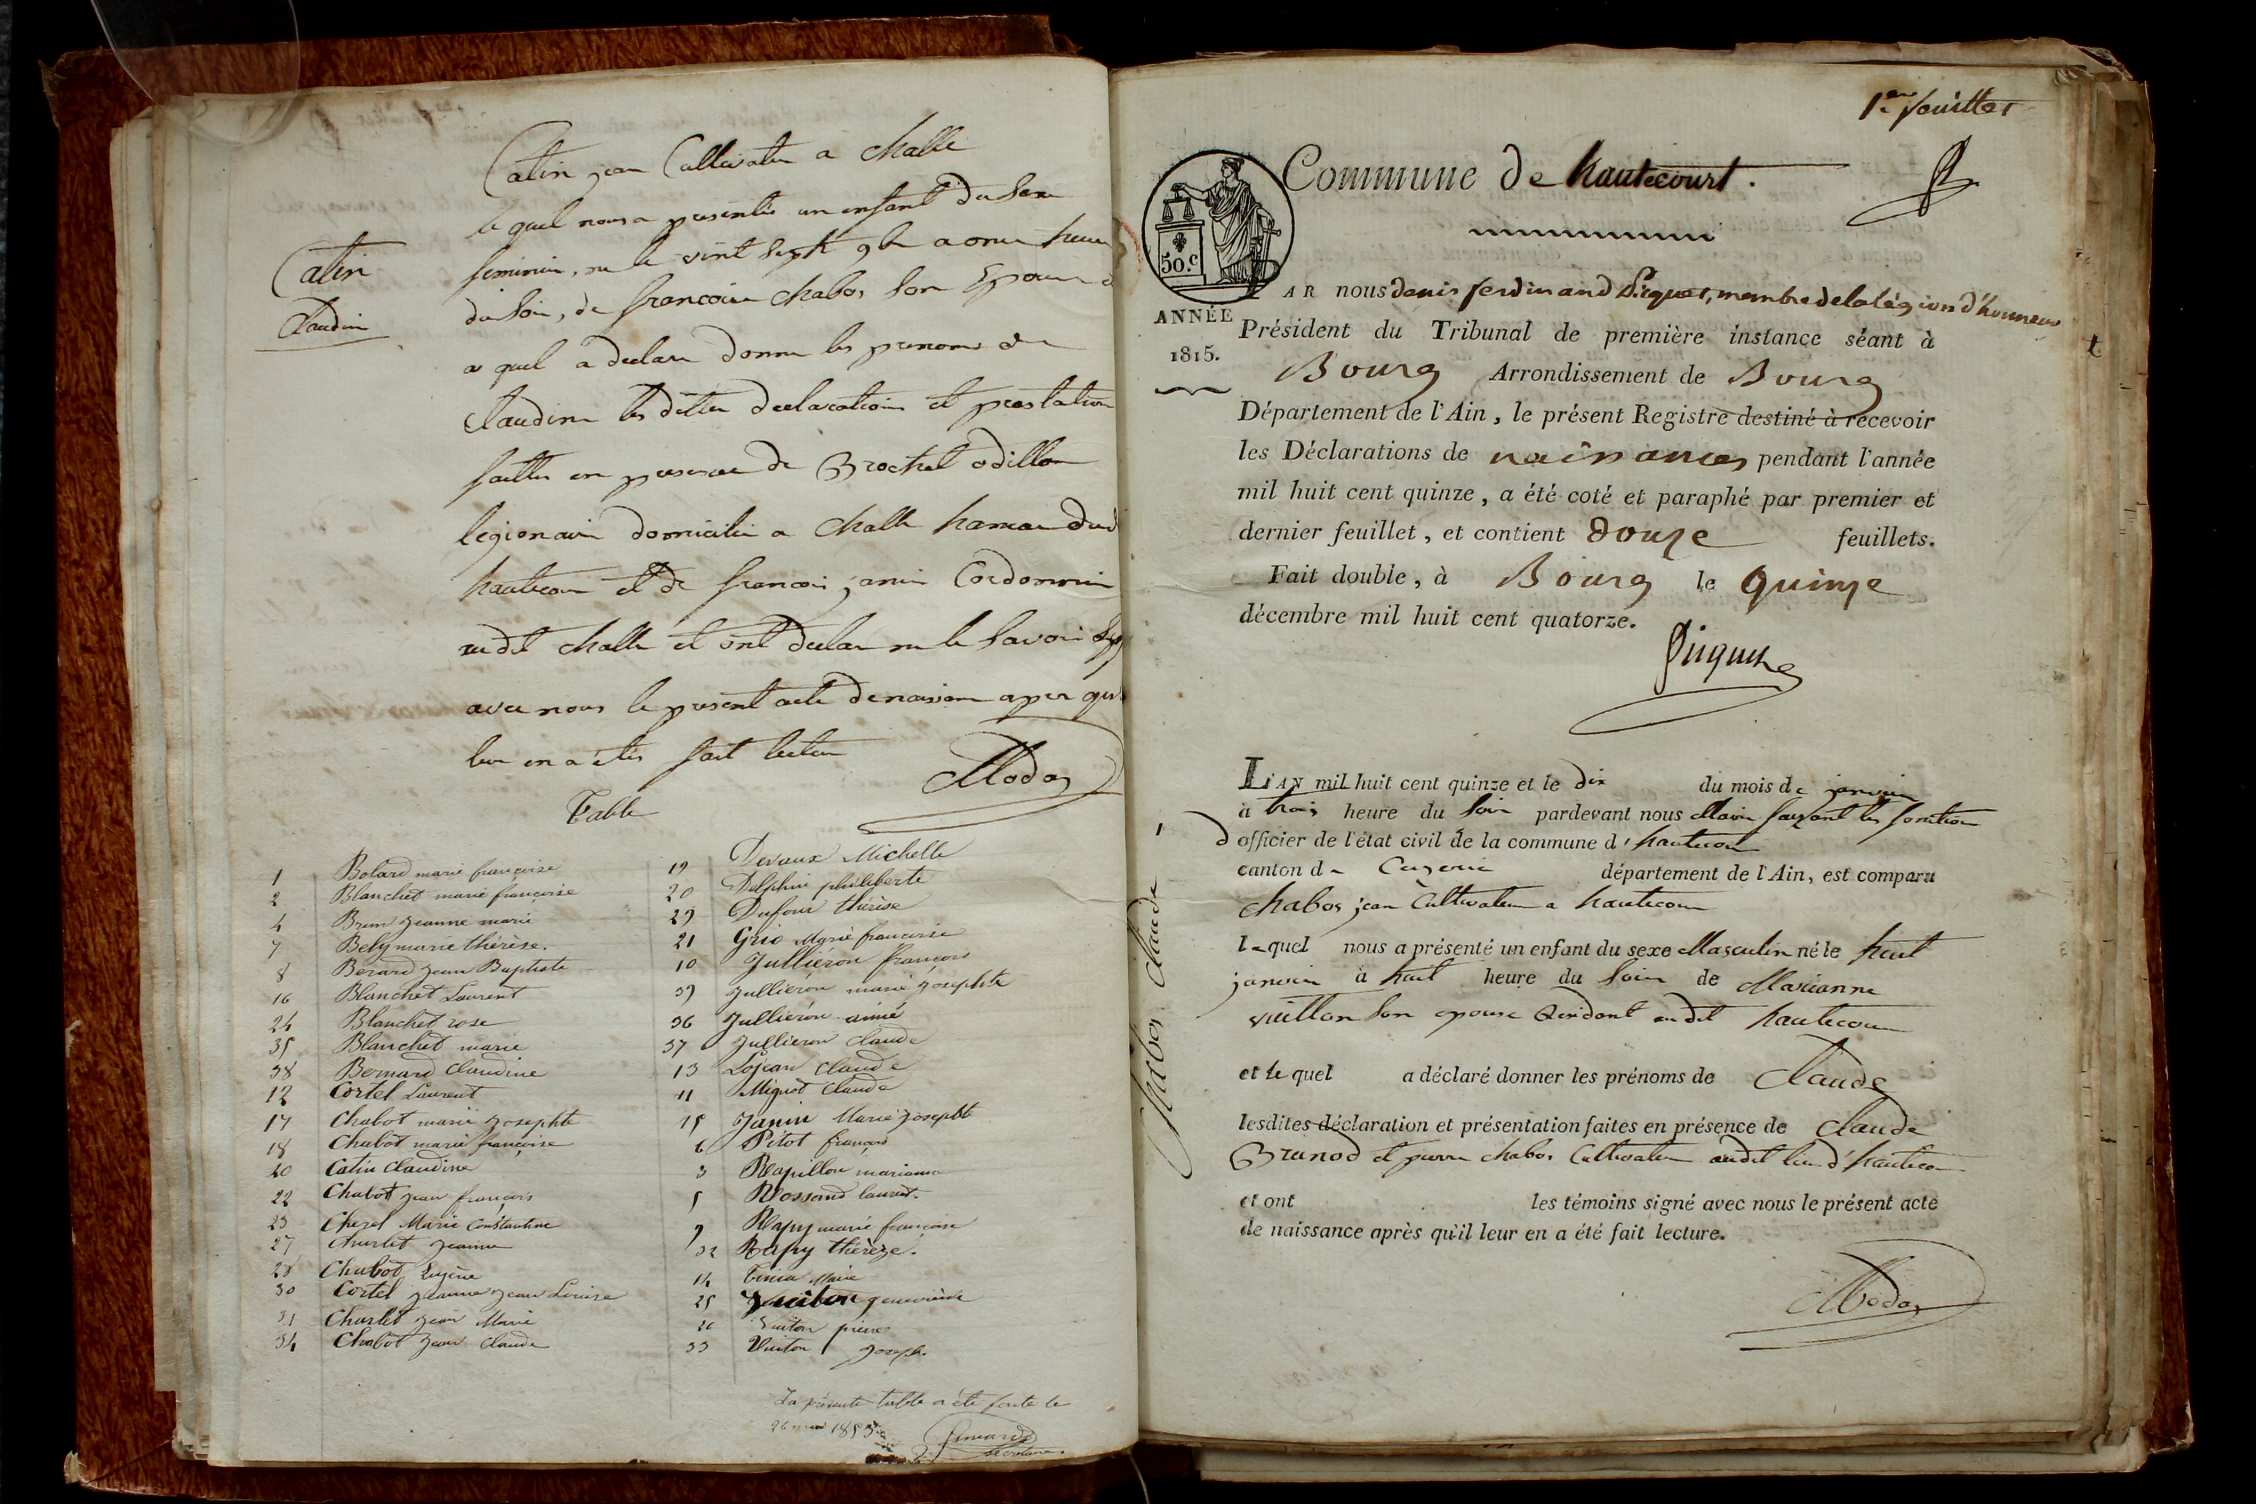 Catin jean Cultivateur a challe
le quel nous a presentée un enfant du Sexe
feminin, ne le vint Sept 9bre a onze heure
du Soir, de francoise chabot Son Epouse
Catin
Claudine
a quel a declare donner les prenoms de
Claudine les dittes declarations et prestation
faittes en presence de Brochet odillon
legionaire domicilie a challe hameau dud
hautecour et de francois janin Cordonnier
au dit challe et ont declare ne le Savoir
avec nous le present acte de naissance apres qu'il
leur en a étés fait lecture
Modas
Table
1 Bolard marie françoise
2 Blanchet marie françoise
4 Brun jeanne marie
7 Bely marie thérèse.
8 Berard jean Baptiste
16 Blanchet Laurent
24 Blanchet rose
35 Blanchet marie
38 Bernard Claudine
12 Cortel Laurent
17 Chabot marie josephte
18 Chabot marie françoise
40 Catin Claudine
22 Chabot jean françois
23 Cherel Marie Constantine
27 Charlet jeanne
28 Chabot Eugène
30 Cortel jeanne jean Louise
31 Charlet jean Marie
34 Chabot jean Claude
19 Devaux Michelle
20 Delphin philiberte
29 Dufour thérèse
21 Gric Marie françoise
10 Jullieron françois
39 Jullieron marie josephte
36 Jullieron aimé
37 Jullieron Claude
13 Lojean Claude
11 Mignot Claude
15 Janin Marie josephte
6 Pitot françois
3 Rapillon marianne
5 Rossand laurent.
9 Rapy marie françoise
32 Rapy thérèze.
14 Tenia Marie
25 Vuiton genevieve
26 Vuiton pierre
33 Vuiton Joseph
La présente table a été faite le
26 mai 1853
secrétaire.
1er feuillet
Commune de hautecourt.
50.c
ANNÉE
1815.
PAR nous denis ferdinand Picquet, membre de la légion d'honneur
Président du Tribunal de première instance séant à
Bourg Arrondissement de Bourg
Département de l'Ain, le présent Registre destiné à recevoir
les Déclarations de naissances pendant l'année
mil huit cent quinze, a été coté et paraphé par premier et
dernier feuillet, et contient douze feuillets.
Fait double, à Bourg le quinze
décembre mil huit cent quatorze.
Picquet
L'AN mil huit cent quinze et le dix du mois de janvier
à trois heure du Soir pardevant nous Maire faisant les fonction
d officier de l'état civil de la commune d'hautecour
canton de Ceyzeria département de l'Ain, est comparu
chabos jean Cultivateur a hautecour
lequel nous a présenté un enfant du sexe Masculin né le huit
janvier à huit heure du Soir de Marianne
vuitton Son epouse Residant audit hautecour
et le quel a déclaré donner les prénoms de Claude
lesdites déclaration et présentation faites en présence de Claude
Brunod et pierre chabos Cultivateur audit lieu d'hautecour
et ont les témoins signé avec nous le présent acte
de naissance après qu'il leur en a été fait lecture.
Modas
1
Chabos Claude